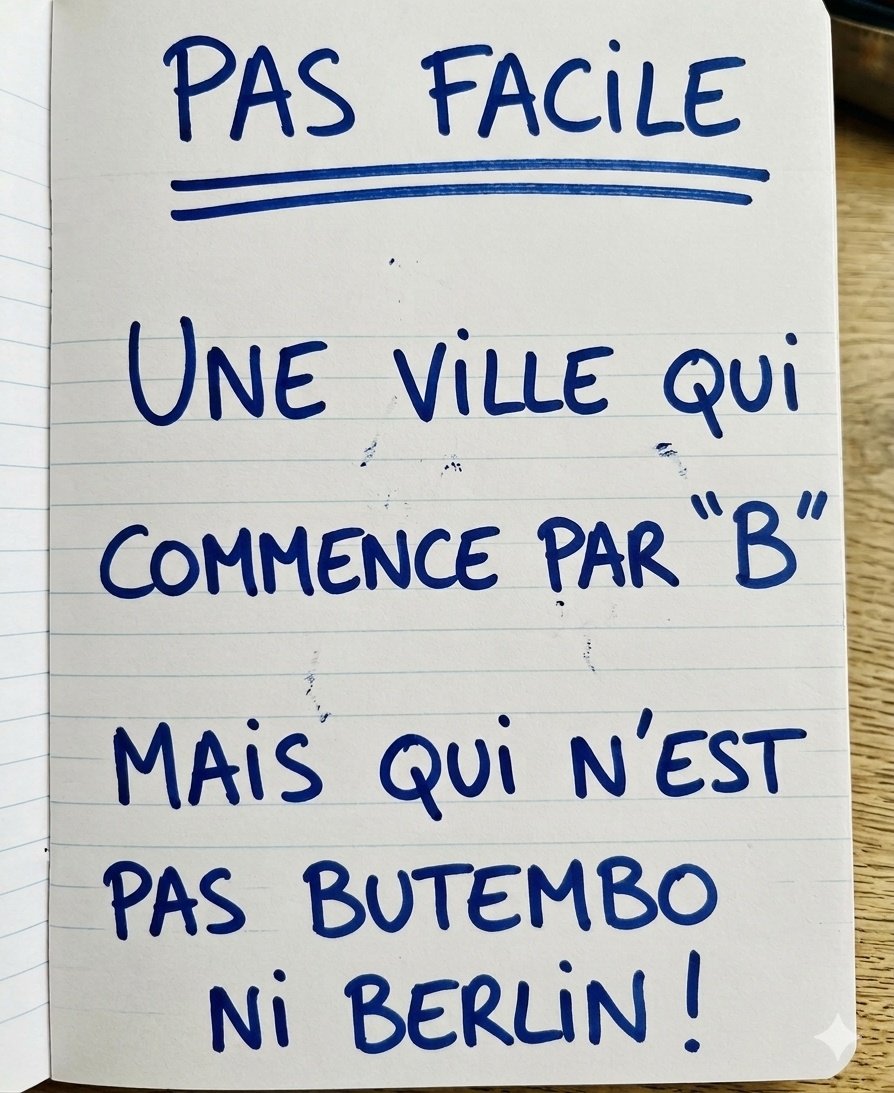 PAS FACILE
UNE VILLE QUI
COMMENCE PAR "B"
MAIS QUI N'EST
PAS BUTEMBO
NI BERLIN !